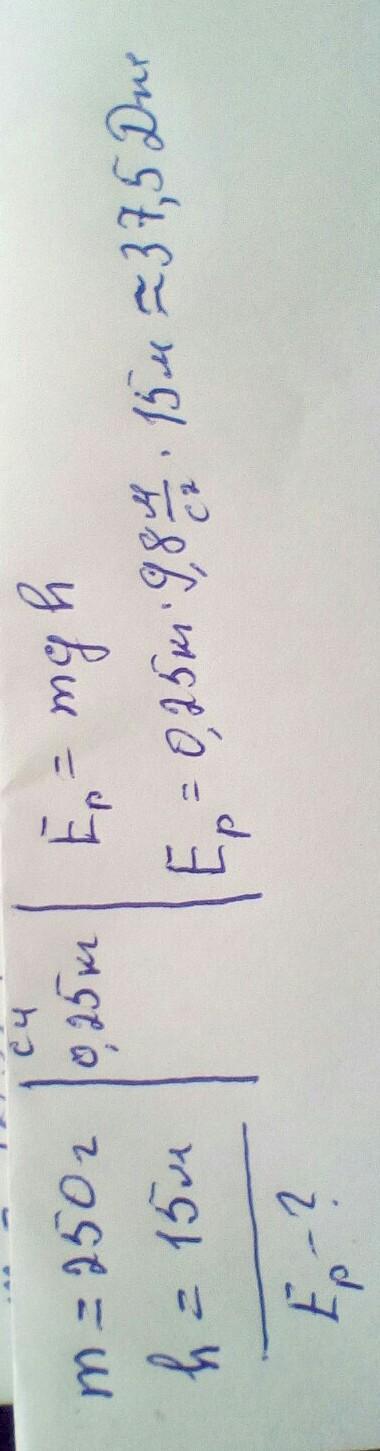 m = 250 г
h = 15 м
Ep - ?
СИ
0,25 кг
Ep = mgh
Ep = 0,25 кг · 9,8 м/с² · 15 м ≈ 37,5 Дж